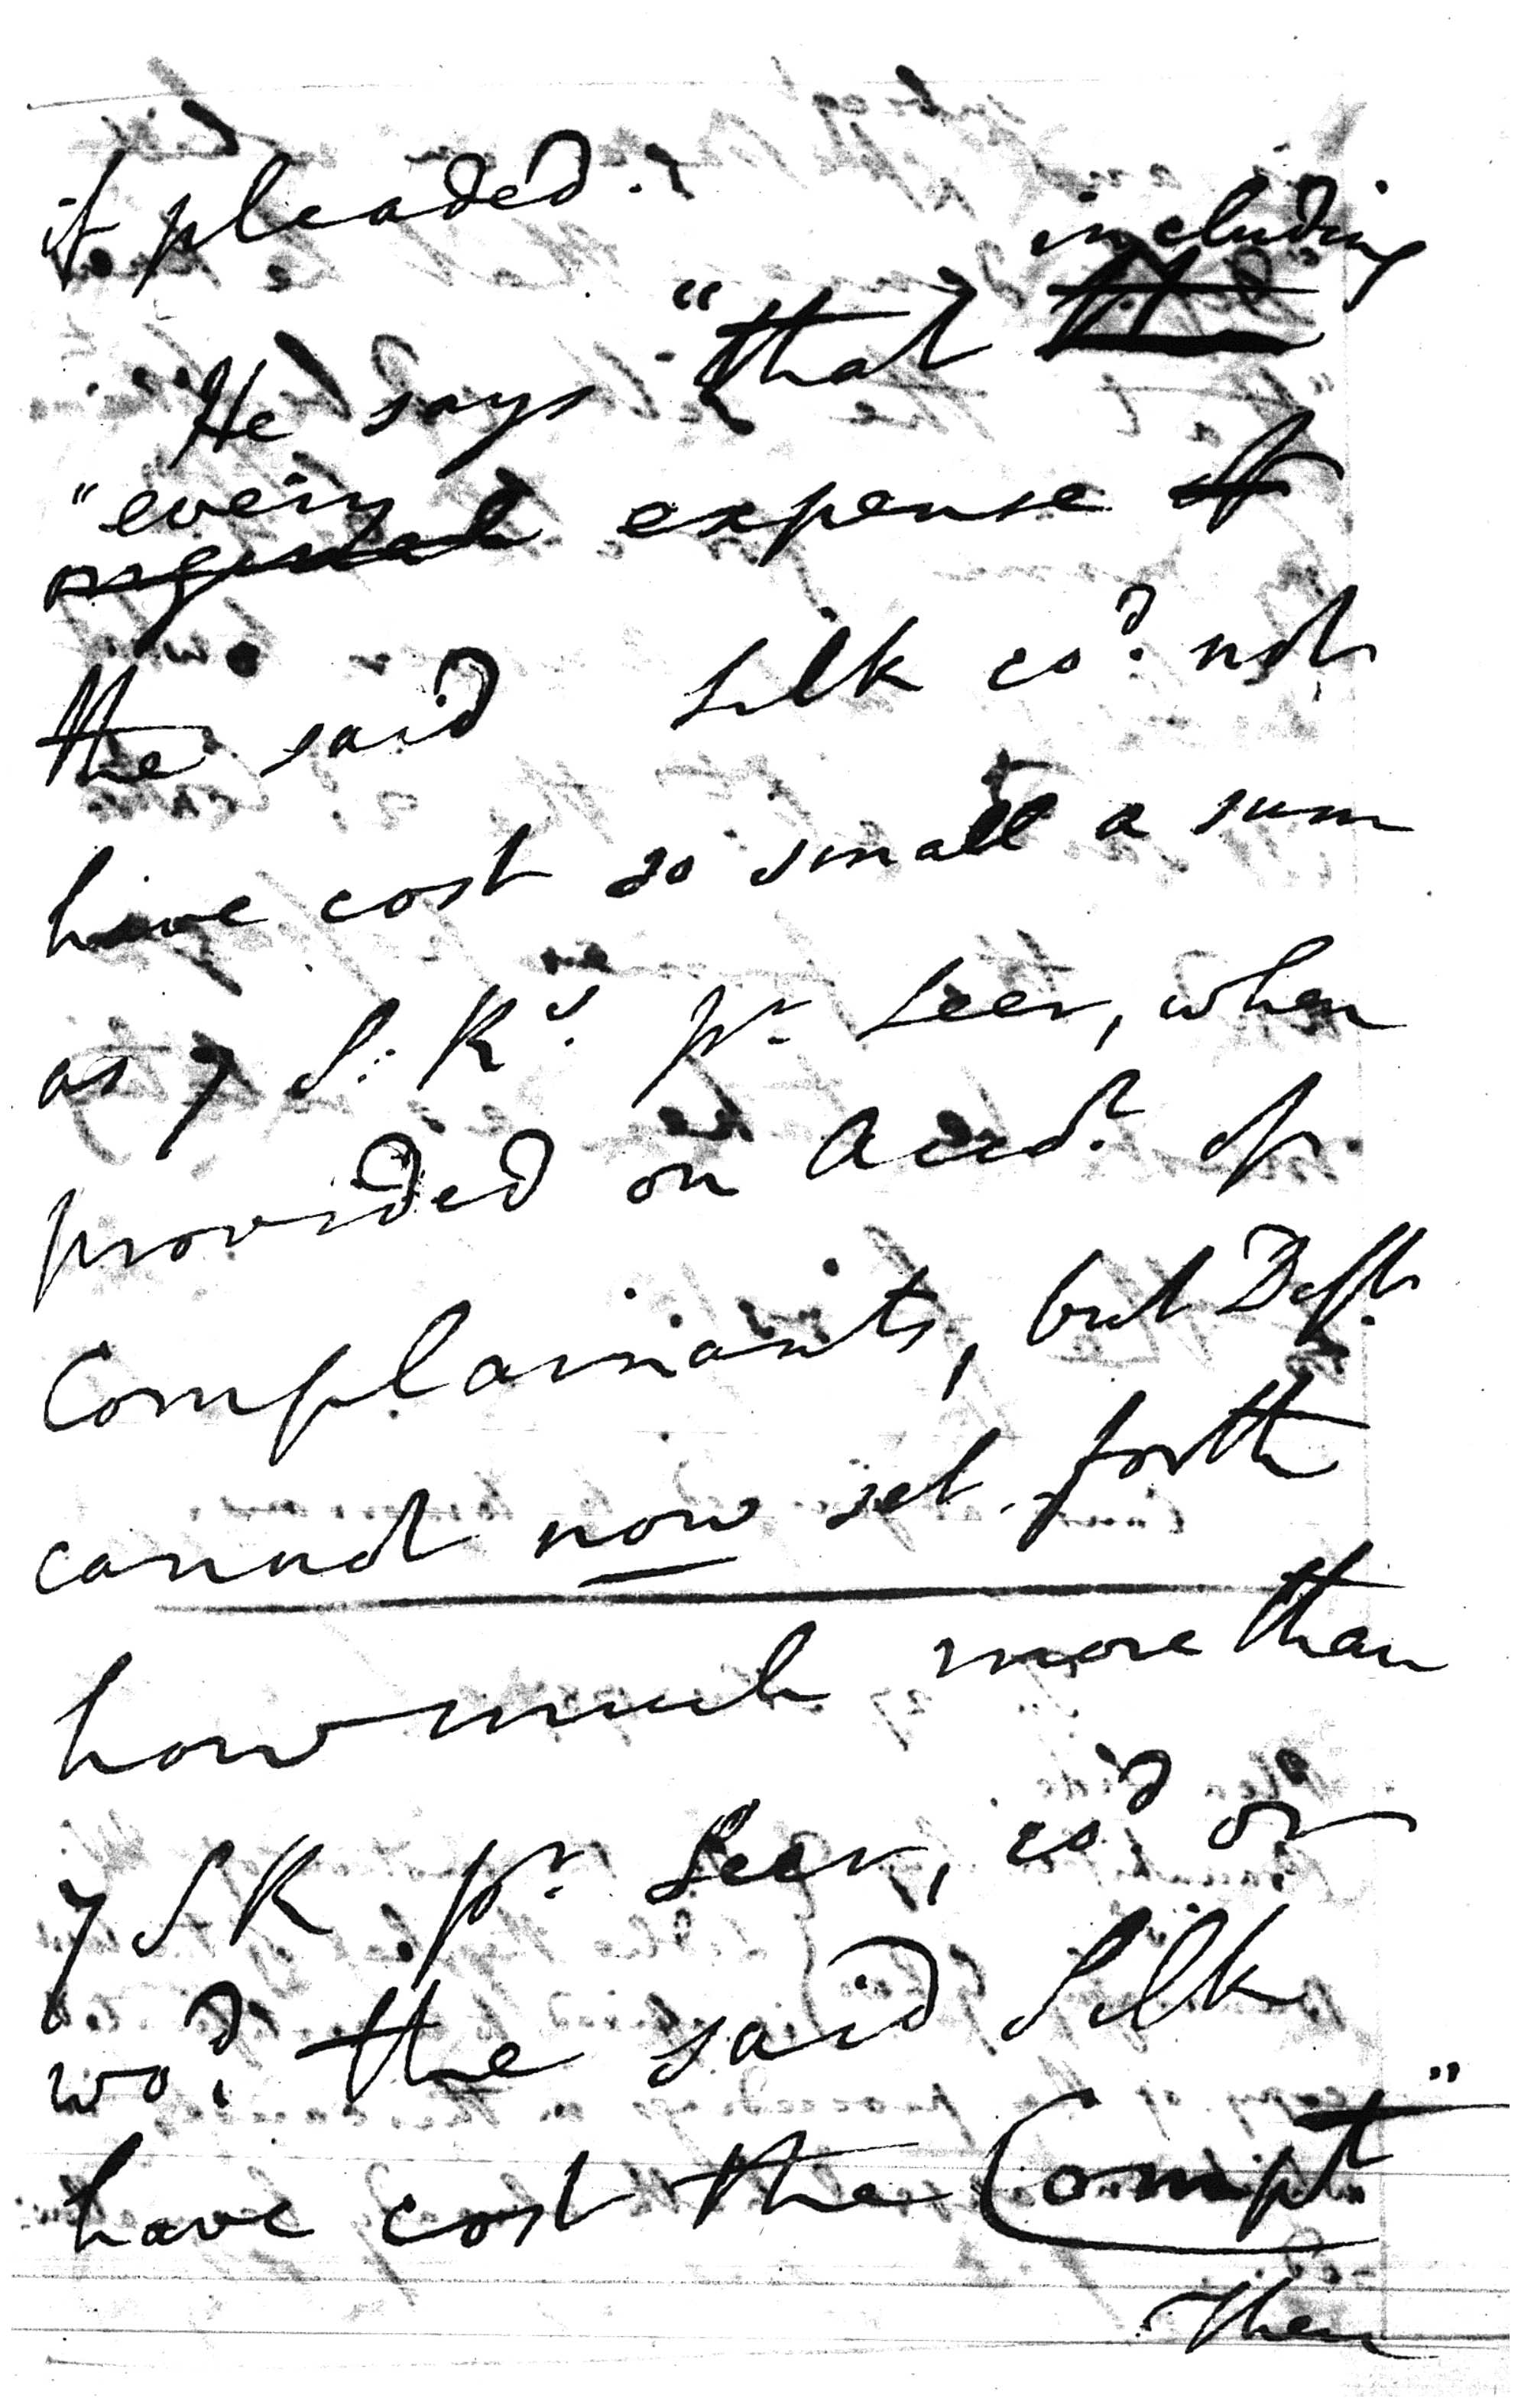 if pleaded.
including
He says "that the
"every
original expense of
the said Silk co.d not
have cost so small a sum
as 7 S. R.s p.r Seer, when
provided on Acco.t of
Complainants, but Deft.
cannot now set forth
how much more than
7 S R p.r Seer, co.d or
wo.d the said Silk
have cost the Compt."
Then